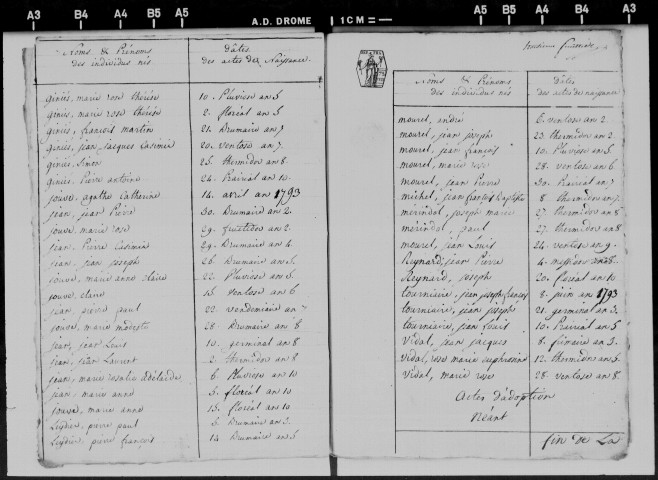 A3 B4 A4 B5 A5 A.D. DROME 1CM A5 B5 A4 B4 A3
Noms & Prénoms des individus nés
dâtes des actes de Naissance
giniès, marie rose thérèse 10. Pluviose an 5
giniès, marie rose thérèse 2. floréal an 5
giniès, françois martin 21. Brumaire an 7
giniès, jean jacques Casimir 20. ventose an 7.
giniès, Simon 25. thermidor an 8.
giniès, Pierre antoine 24. Prairial an 10.
jouve, agathe Catherine 14. avril an 1793
jean, jean Pierre 30. Brumaire an 2.
jouve, marie rose 29. fructidor an 2.
jean, Pierre Casimir 29. Brumaire an 4.
jean, jean joseph 26. Brumaire an 5.
jouve, marie anne claire 22. Pluviose an 5.
jouve, claire 15. ventose an 6
jean, pierre paul 22. vendemiaire an 7
jouve, marie modeste 28. Brumaire an 8
jean, jean Louis 10. germinal an 8
jean, jean Laurent 2. thermidor an 8
jean, marie rosalie adelaïde 6. Pluviose an 10
jean, marie anne 5. floréal an 10
jouve, marie anne 15. floréal an 10
Leydier, pierre paul 5. Brumaire an 3.
Leydier, pierre françois 14. Brumaire an 5
Noms & Prénoms des individus nés
dâtes des actes de naissance
mourel, andré 6. ventose an 2.
mourel, jean joseph 23. thermidor an 2.
mourel, jean françois 10. Pluviose an 5.
mourel, marie rose 28. ventose an 6
mourel, jean Pierre 30. Prairial an 7
michel, jean françois Baptiste 8. thermidor an 7.
mérindol, joseph marie 27. thermidor an 8
mérindol, paul 27. thermidor an 8
mourel, jean Louis 24. ventose an 9.
Reynard, jean Pierre 4. messidor an 8.
Reynard, joseph 20. floréal an 10
tourniaire, jean joseph françois 8. juin an 1793
tourniaire, jean joseph 21. germinal an 3.
tourniaire, jean Louis 10. Prairial an 5
Vidal, jean jacques 8. frimaire an 3.
Vidal, rose marie euphrosine 12. thermidor an 5.
Vidal, marie rose 28. ventose an 8.
Actes d'adoption
Néant
fin de La